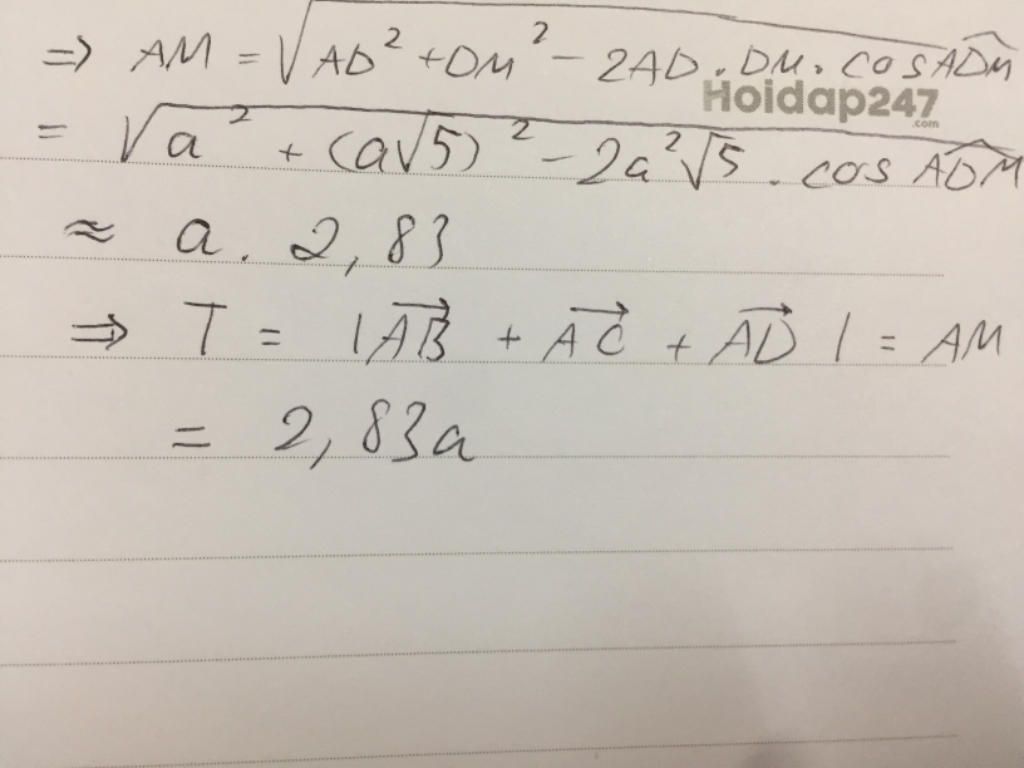 ⇒ AM = √(AD² + DM² - 2AD . DM . cos ADM^)
Hoidap247
.com
= √(a² + (a√5)² - 2a²√5 . cos ADM^)
≈ a . 2,83
⇒ T = |AB→ + AC→ + AD→| = AM
= 2,83a